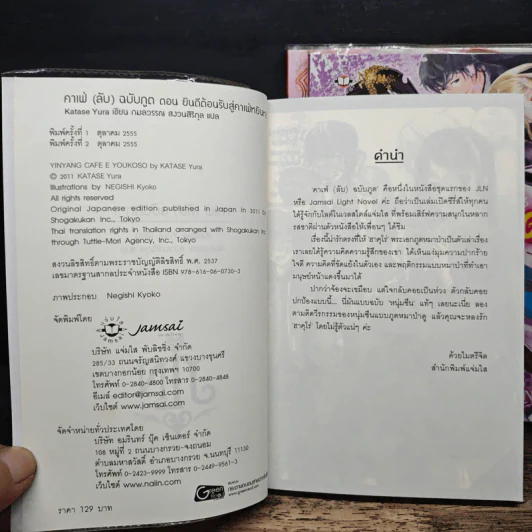 คาเฟ่ (ลับ) ฉบับภูต ตอน ยินดีต้อนรับสู่คาเฟ่หยิน
Katase Yura เขียน กมลวรรณ สงวนสิริกุล แปล
พิมพ์ครั้งที่ 1 ตุลาคม 2555
พิมพ์ครั้งที่ 2 ตุลาคม 2555
YINYANG CAFE E YOUKOSO by KATASE Yura
© 2011 KATASE Yura
Illustrations by NEGISHI Kyoko
All rights reserved
Original Japanese edition published in Japan in 2011
Shogakukan Inc., Tokyo
Thai translation rights in Thailand arranged with Shogakukan
through Tuttle-Mori Agency, Inc., Tokyo
สงวนลิขสิทธิ์ตามพระราชบัญญัติลิขสิทธิ์ พ.ศ. 2537
เลขมาตรฐานสากลประจำหนังสือ ISBN 978-616-06-0730-3
ภาพประกอบ Negishi Kyoko
จัดพิมพ์โดย
jamsai
บริษัท แจ่มใส พับลิชชิ่ง จำกัด
285/33 ถนนจรัญสนิทวงศ์ แขวงบางขุนศรี
เขตบางกอกน้อย กรุงเทพฯ 10700
โทรศัพท์ 0-2840-4800 โทรสาร 0-2840-4848
อีเมล์ editor@jamsai.com
เว็บไซต์ www.jamsai.com
จัดจำหน่ายทั่วประเทศโดย
บริษัท อมรินทร์ บุ๊ค เซ็นเตอร์ จำกัด
108 หมู่ที่ 2 ถนนบางกรวย-จงถนอม
ตำบลมหาสวัสดิ์ อำเภอบางกรวย จ.นนทบุรี 11130
โทรศัพท์ 0-2423-9999 โทรสาร 0-2449-9561-3
เว็บไซต์ www.naiin.com
Green
ราคา 129 บาท
คำนำ
'คาเฟ่ (ลับ) ฉบับภูต' คือหนึ่งในหนังสือชุดแรกของ JLN
หรือ Jamsai Light Novel ค่ะ ถือว่าเป็นเล่มเปิดซีรี่ส์ให้ทุกคน
ได้รู้จักกับไลต์โนเวลสไตล์แจ่มใส ที่พร้อมเสิร์ฟความสนุกในหลาก
รสชาติผ่านตัวหนังสือให้เพื่อนๆ ได้ชิม
เรื่องนี้น่ารักตรงที่ให้ 'ฮาคุโร่' พระเอกภูตหมาป่าเป็นตัวเล่าเรื่อง
เราเลยได้รู้ความคิดความรู้สึกของเขา ได้เห็นแง่มุมความปากร้าย
ใจดี ความคิดที่ขัดแย้งในตัวเอง และพฤติกรรมแบบหมาป่าที่ทำเอา
มนุษย์หน้าแดงขึ้นมาได้
ปากว่าจ้องจะเขมือบ แต่ใจกลับคอยเป็นห่วง ตัวกลับคอย
ปกป้องแบบนี้... นี่มันแบบฉบับ 'หนุ่มซึน' แท้ๆ เลยนะเนี่ย ลอง
ตามติดวีรกรรมของหนุ่มซึนแบบภูตหมาป่าดู แล้วคุณจะหลงรัก
'ฮาคุโร่' โดยไม่รู้ตัวแน่ๆ ค่ะ
ด้วยไมตรีจิต
สำนักพิมพ์แจ่มใส